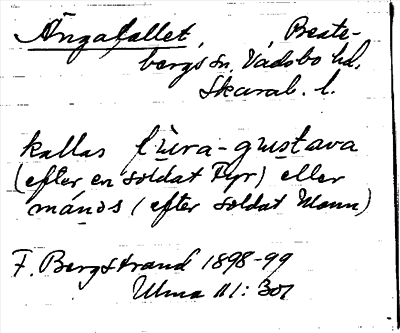 Ängafallet, Beate-
bergs sn, Vadsbo hd.
Skarab. l.
kallas fura-gustava
(efter en soldat Fyr) eller
månos (efter soldat Mann)
F. Bergstrand 1898-99
Ulma 111: 301